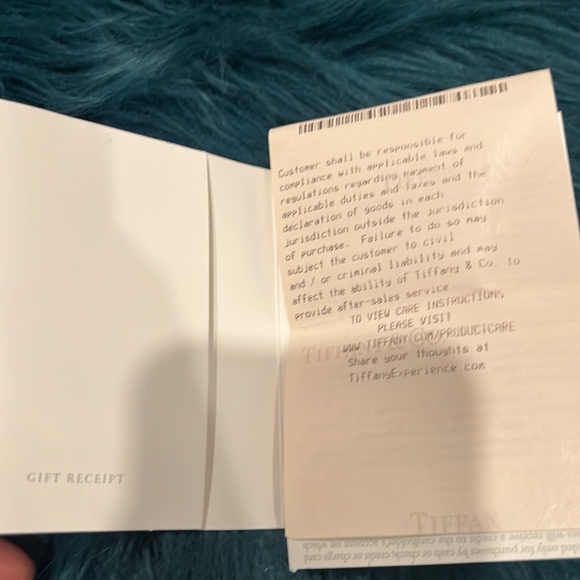 Customer shall be responsible for
compliance with applicable laws and
regulations regarding payment of
applicable duties and taxes and the
declaration of goods in each
jurisdiction outside the jurisdiction
of purchase. Failure to do so may
subject the customer to civil
and / or criminal liability and may
affect the ability of Tiffany & Co. to
provide after-sales service.
TO VIEW CARE INSTRUCTIONS
PLEASE VISIT
WWW.TIFFANY.COM/PRODUCTCARE
Share your thoughts at
TiffanyExperience.com
GIFT RECEIPT
TIFFAN
only for purchases by cash or check; credit or charge card
will receive a credit to the cardholder's account on which